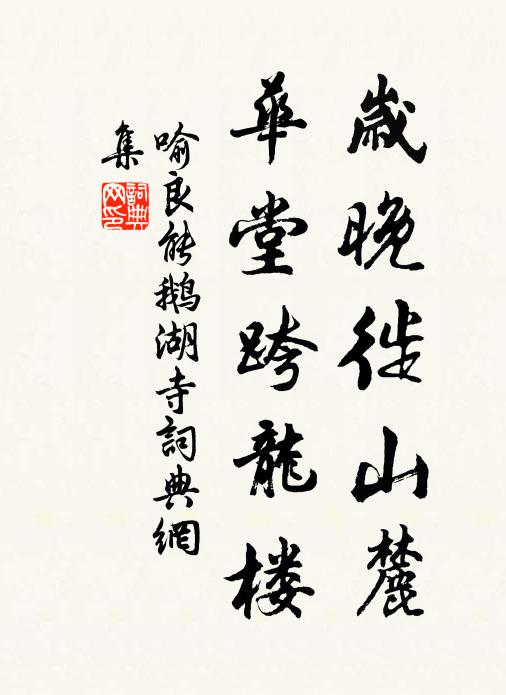 歲晚徙山麓
華堂跨龍楼
喻良能鵝湖寺詞典網
集
詞典
网印